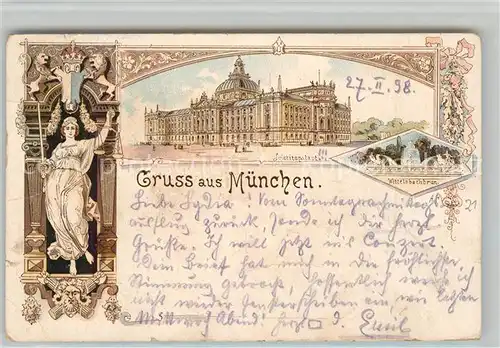 27. II. 98.
Justizpalast
Wittelsbachbrun.
Gruss aus München.
Liebe Lydia! Vom Sonntagnachmittags
ausflug zurück, sende ich dir herzl
Grüße. Ich will jetzt ins Conzert
Dein Brief hat mich in die fröhlichste
Stimmung gebracht, hoffentlich werde ich
nicht wieder Fensterscheiben ein wie letzten
Mittwoch Abend! Herzl. d. Emil